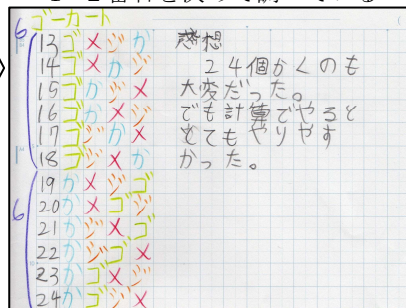 ゴーカート
6
13 ゴ メ ジ か
14 ゴ メ か ジ
15 ゴ か ジ メ
16 ゴ か メ ジ
17 ゴ ジ か メ
18 ゴ ジ メ か
6
19 か メ ジ ゴ
20 か メ ゴ ジ
21 か ジ メ ゴ
22 か ジ ゴ メ
23 か ゴ メ ジ
24 か ゴ ジ メ
感想
24個かくのも
大変だった。
でも計算でやると
とてもやりやす
かった。